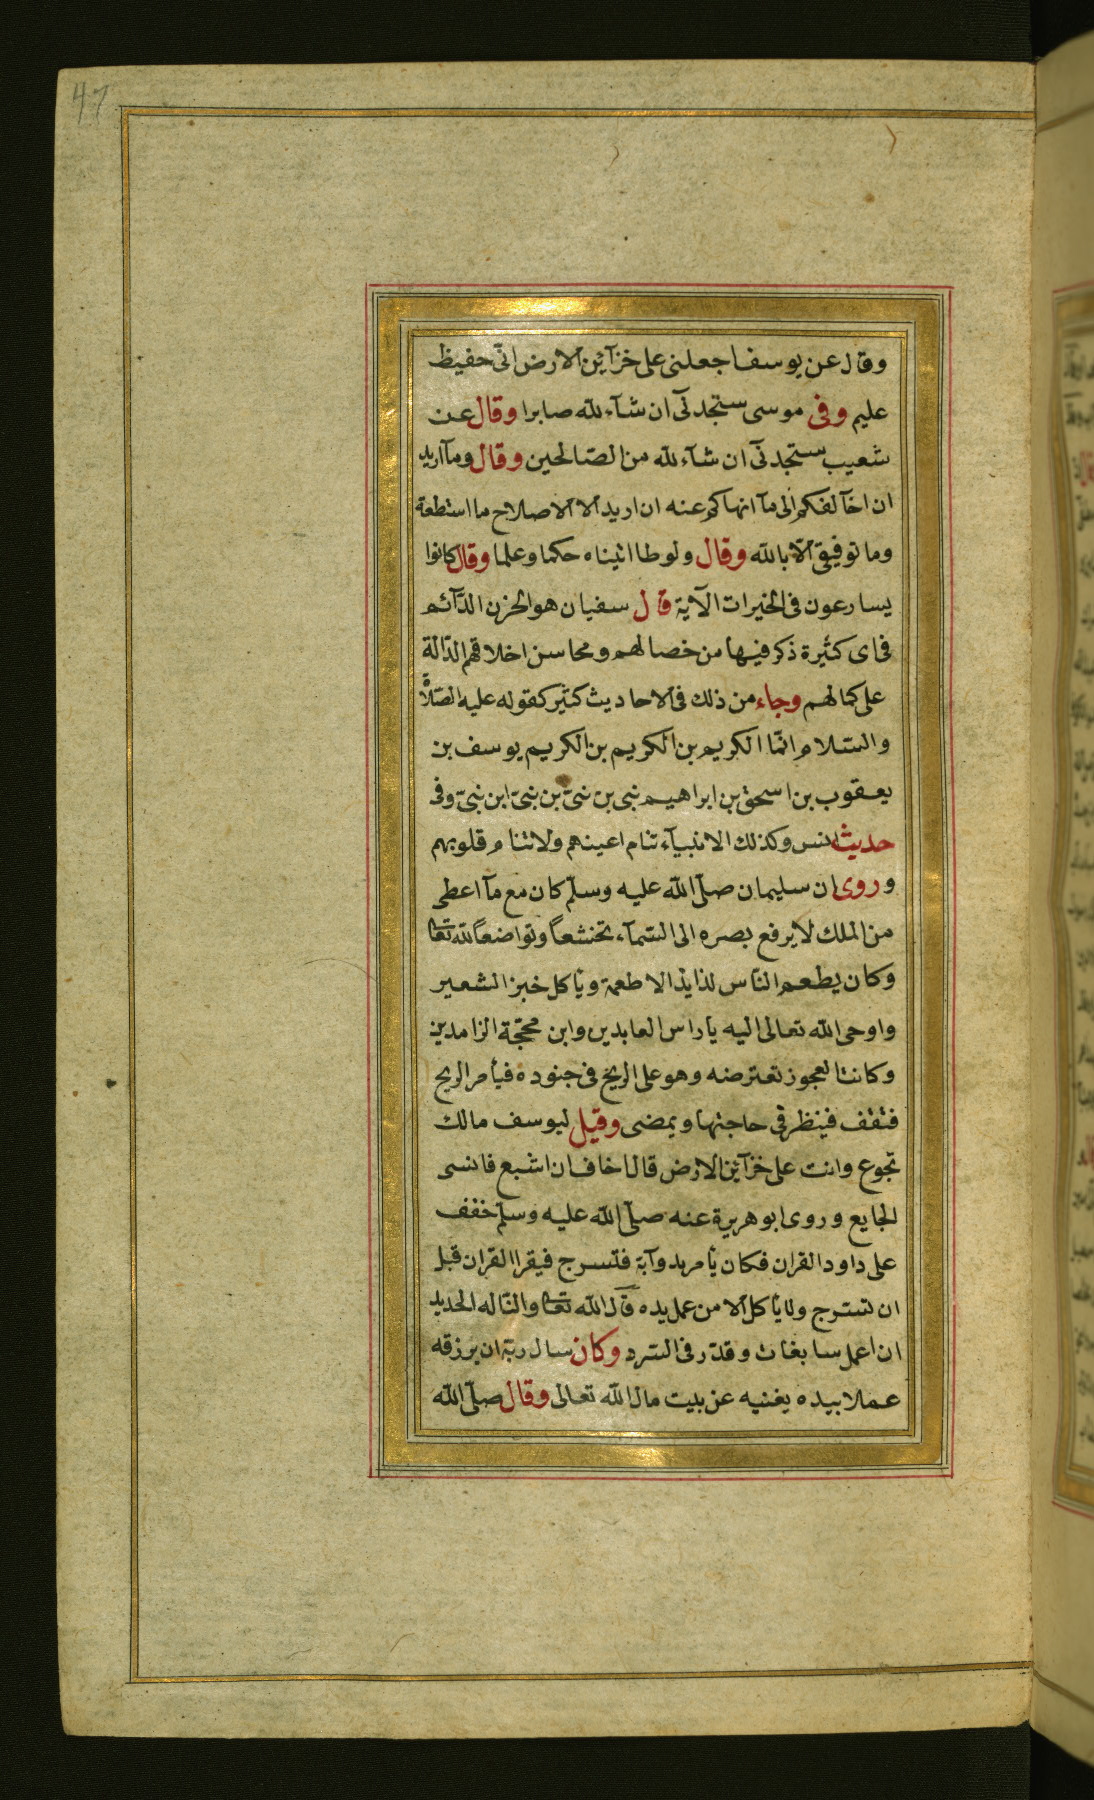 47
وقال عن يوسف اجعلنى على خزآئن الارض انّى حفيظ
عليم وفى موسى ستجدنى ان شآء لله صابرا وقال عن
شعيب ستجدنى ان شآء لله من الصّالحين وقال ومآ اريد
ان اخآلفكم الى مآ انهاكم عنه ان اريد الا الاصلاح ما استطعة
وما توفيقى الّا بالله وقال ولوطا اتيناه حكما وعلما وقال كانوا
يسارعون فى الخيرات الآية قال سفيان هو الحزن الدّآئم
فى اى كثيرة ذكر فيها من خصالهم ومحاسن اخلاقهم الدّالة
على كمالهم وجاء من ذلك فى الاحاديث كثير كقوله عليه الصّلاة
والسّلام انّما الكريم بن الكريم بن الكريم يوسف بن
يعقوب بن اسحق بن ابراهيم نبى بن نبىّ بن نبىّ ابن نبىّ وفى
حديث انس وكذلك الانبيآء تنام اعينهم ولا تنام قلوبهم
وروى ان سليمان صلّى الله عليه وسلّم كان مع مآ اعطى
من الملك لا يرفع بصره الى السّمآء تخشعاً وتواضعاً لله تعا
وكان يطعم النّاس لذايذ الاطعمة ويأكل خبز الشعير
واوحى الله تعالى اليه يا راس العابدين وابن محجّة الزاهدين
وكانت العجوز تعترضه وهو على الريح فى جنوده فيأمر الريح
فتقف فينظر فى حاجتها ويمضى وقيل ليوسف مالك
تجوع وانت على خزآئن الارض قال اخاف ان اشبع فانسى
الجايع وروى ابو هريرة عنه صلّى الله عليه وسلّم خفف
على داود القران فكان يأمر بدوآبّه فتسرج فيقرا القران قبل
ان تسرج ولا يأكل الا من عمل يده قال الله تعا والنّا له الحديد
ان اعمل سابغات وقدّر فى السّرد وكان سال ربّه ان يرزقه
عملا بيده يغنيه عن بيت مال الله تعالى وقال صلّى الله